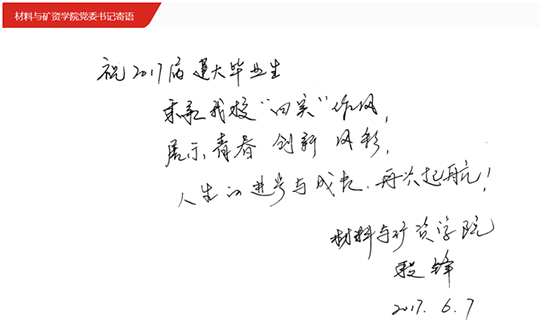 材料与矿资学院党委书记寄语
祝2017届建大毕业生
秉承我校“四实”作风,
展示青春 创新 风彩,
人生的进步与成长,再次起航!
材料与矿资学院
锋
2017.6.7